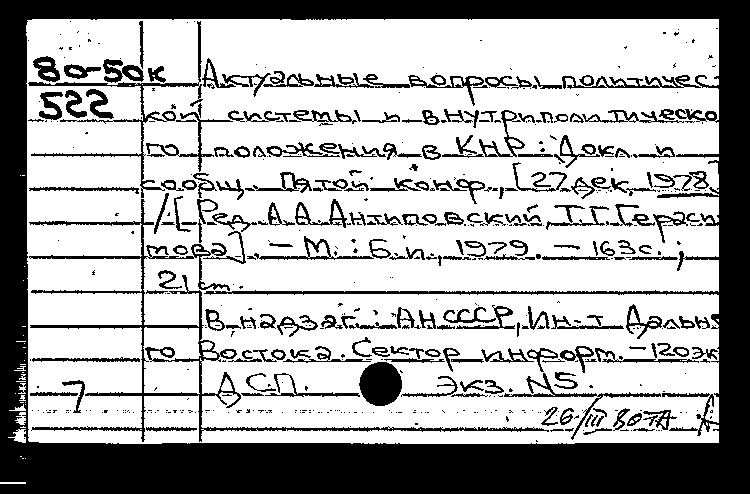 80-50к Актуальные вопросы политичес-
522 кой системы и внутриполитическо-
го положения в КНР : Докл. и
сообщ. Пятой конф., [27 дек. 1978]
/ [Ред. А.А. Антиповский, Т.Г. Гераси-
мова]. – М. : Б.и., 1979. – 163с. ;
21 см.
В надзаг.: АН СССР, Ин-т Дальне
го Востока. Сектор информ. – 120 эк
7 ДСП. Экз. N5.
26/III ВОТА